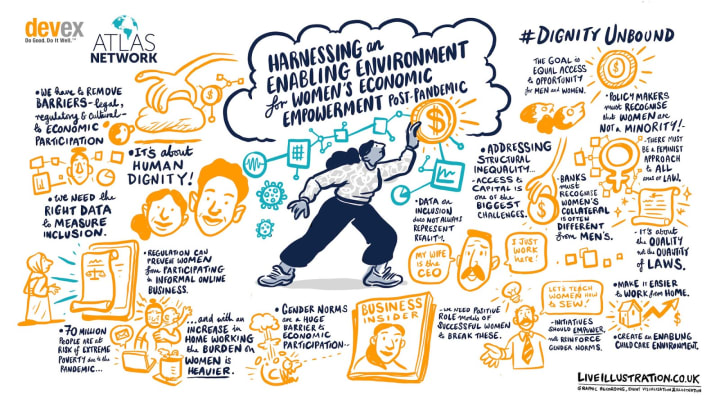 devex
Do Good. Do It Well.™
ATLAS
NETWORK
HARNESSING an
ENABLING ENVIRONMENT
for WOMEN'S ECONOMIC
EMPOWERMENT POST-PANDEMIC
#DIGNITY UNBOUND
• WE have to REMOVE
BARRIERS - legal,
regulatory & cultural -
to ECONOMIC
PARTICIPATION
• IT'S about
HUMAN
DIGNITY!
• WE NEED the
RIGHT DATA
to MEASURE
INCLUSION.
• REGULATION CAN
PREVENT WOMEN
from PARTICIPATING
to INFORMAL ONLINE
BUSINESS.
• 70 MILLION
PEOPLE are at
RISK of EXTREME
POVERTY due to the
PANDEMIC...
...and with an
INCREASE in
HOME WORKING
the BURDEN on
WOMEN is
HEAVIER.
• GENDER NORMS
are a HUGE
BARRIER to
ECONOMIC
PARTICIPATION...
BUSINESS
INSIDER
• DATA on
INCLUSION
does NOT ALWAYS
REPRESENT
REALITY.
MY WIFE
is the
CEO
I JUST
WORK
here!
...WE NEED POSITIVE
ROLE models of
SUCCESSFUL WOMEN
to BREAK THESE.
• ADDRESSING
STRUCTURAL
INEQUALITY...
ACCESS to
CAPITAL is
one of the
BIGGEST
CHALLENGES.
THE GOAL is
EQUAL ACCESS
to OPPORTUNITY
for MEN and WOMEN.
• POLICY MAKERS
must RECOGNISE
that WOMEN are
NOT a MINORITY!
• THERE MUST
BE a FEMINIST
APPROACH
to ALL
areas of LAW.
• BANKS
must
RECOGNISE
WOMEN'S
COLLATERAL
is OFTEN
DIFFERENT
from MEN'S.
• IT'S about
the QUALITY
not the QUANTITY
of LAWS.
LET'S TEACH
WOMEN HOW
to SEW!
• INITIATIVES
SHOULD EMPOWER,
not REINFORCE
GENDER NORMS.
• MAKE it EASIER
to WORK from HOME.
• CREATE an ENABLING
CHILDCARE ENVIRONMENT.
LIVEILLUSTRATION.CO.UK
GRAPHIC RECORDING, EVENT VISUALISATION & ILLUSTRATION